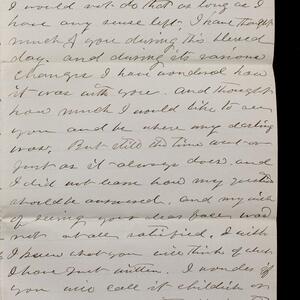 I would not do that as long as I
have any sense left. I have thought
much of you during this blessed
day. and during its various
changes I have wondered how
it was with you. and thought
how much I would like to see
you and be where my darling
was. But still the time went on
just as it always does. and
I did not learn how my question
should be answered. and my wish
of seeing your dear face was
not at all satisfied. I wish
I knew what you will think of what
I have just written. I wonder if
you will call it childish or